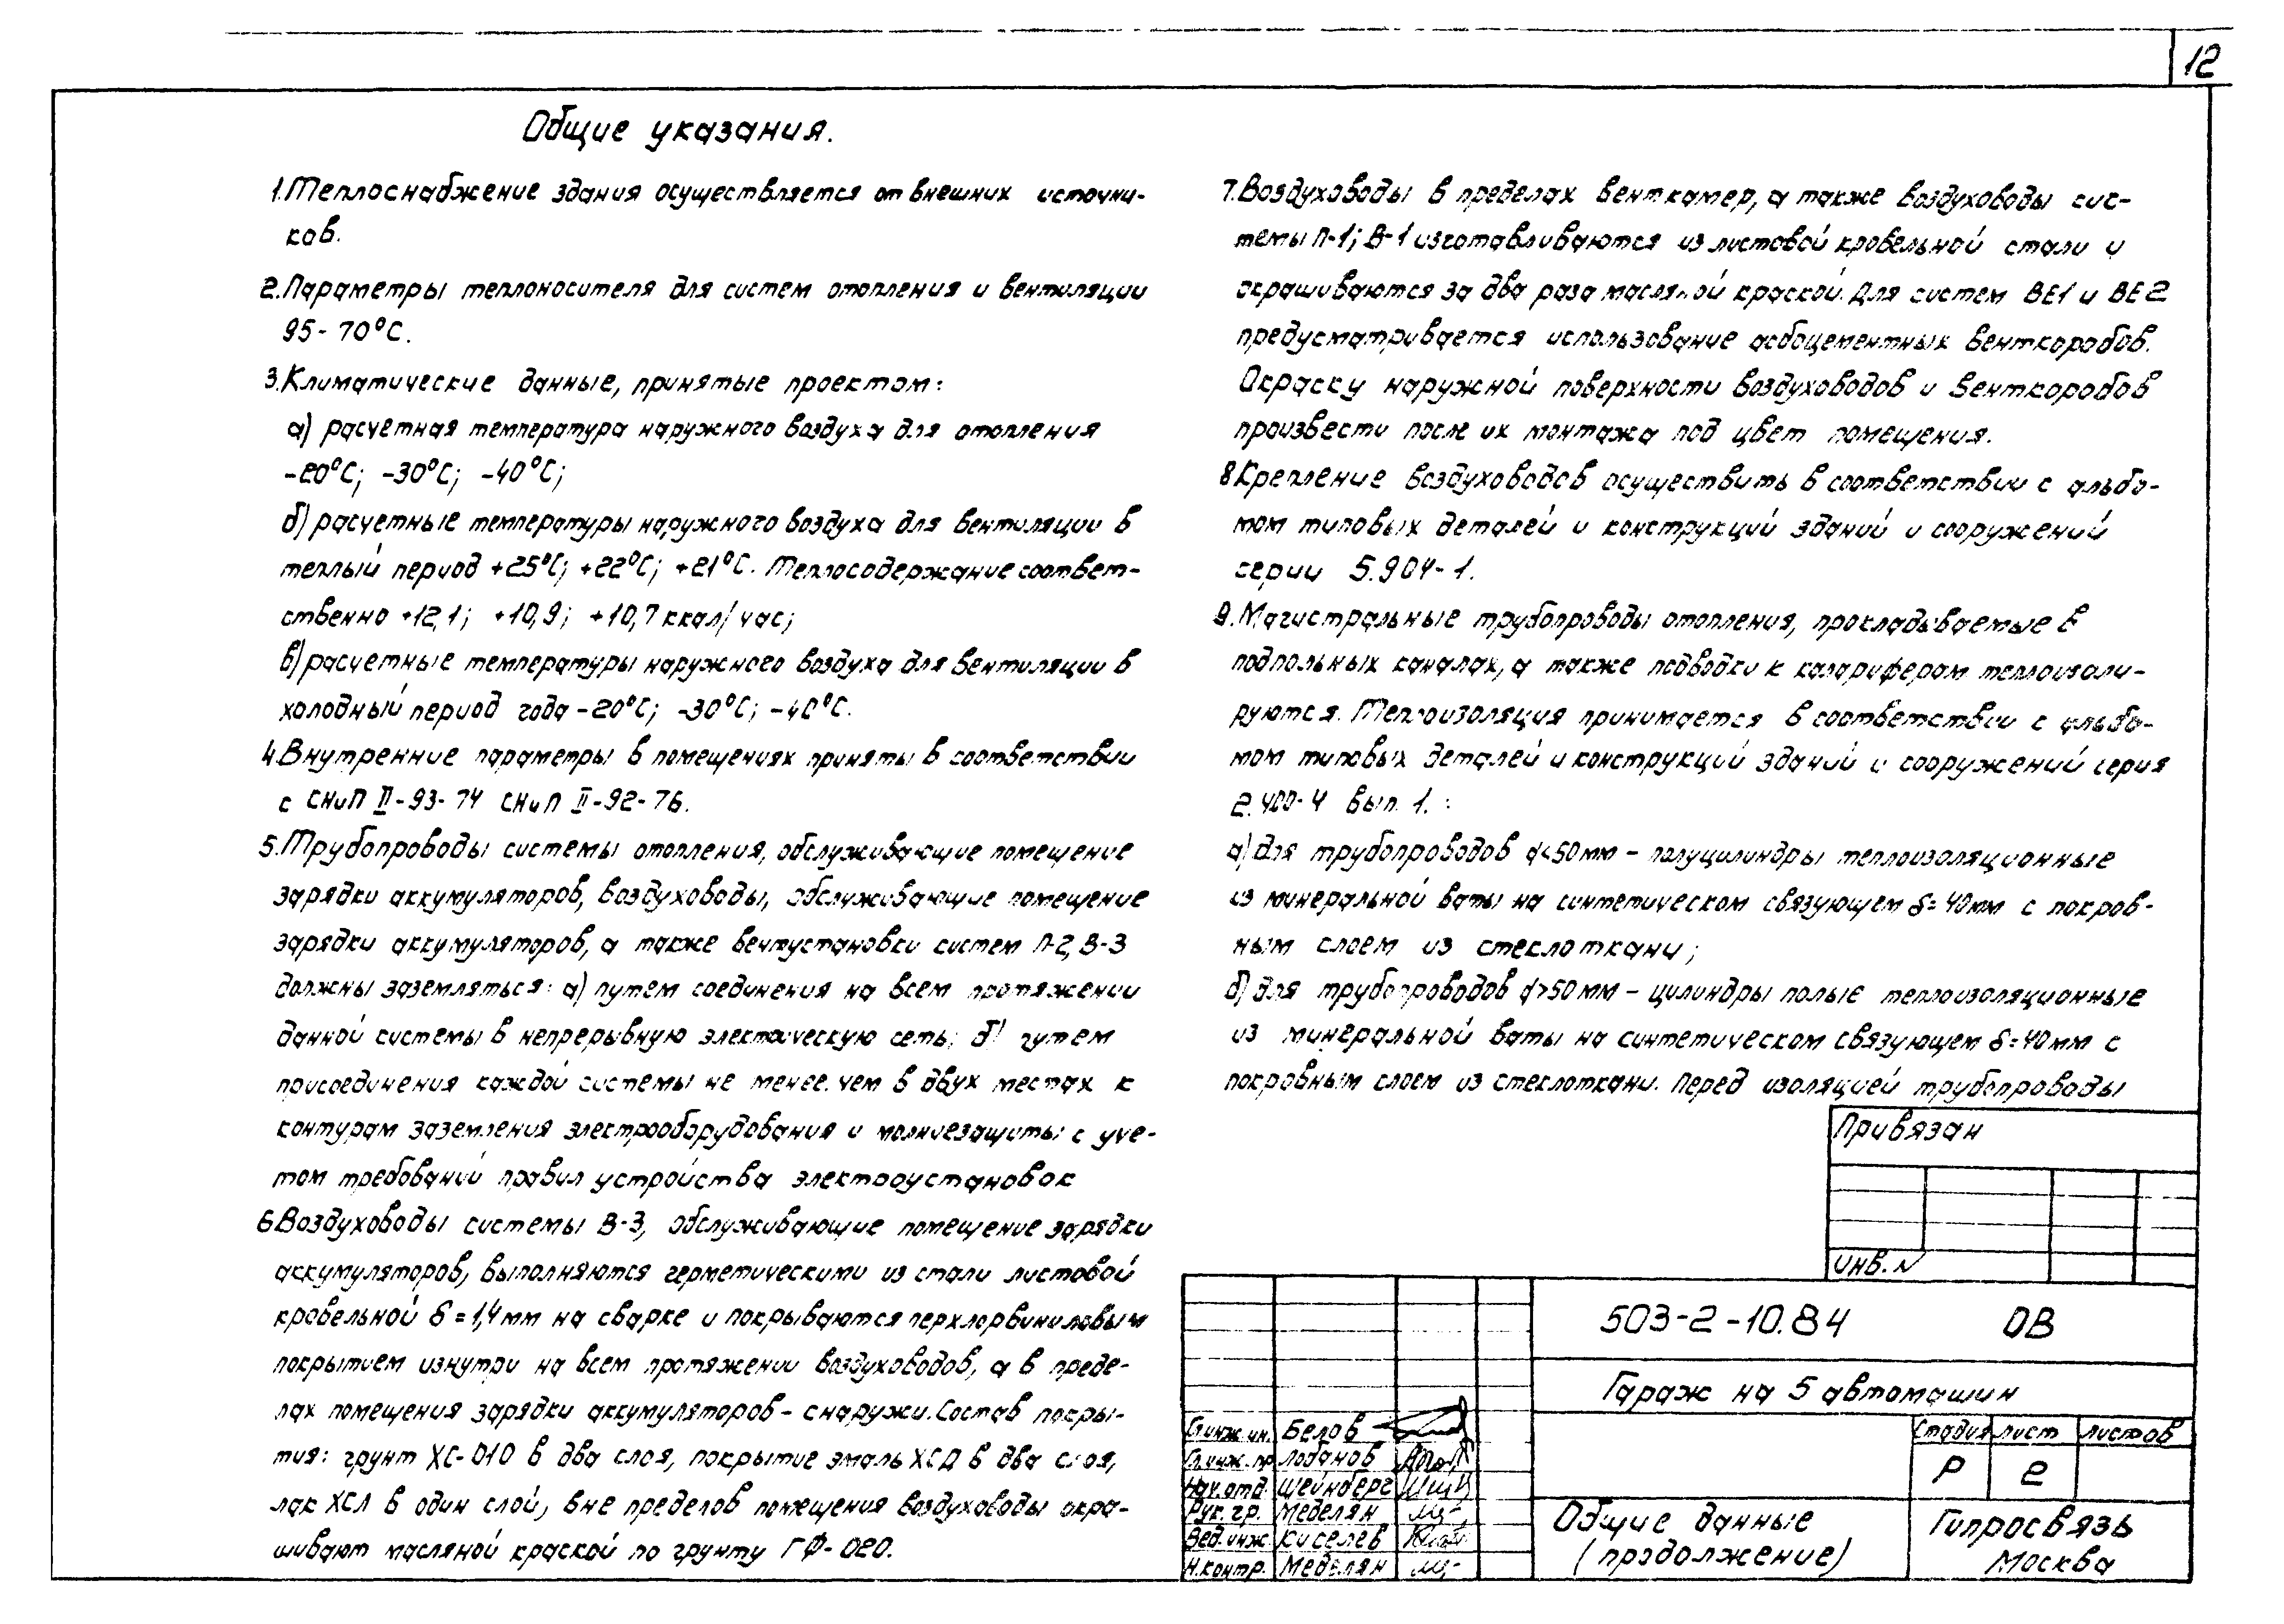 12
Общие указания.
1. Теплоснабжение здания осуществляется от внешних источни-
ков.
2. Параметры теплоносителя для систем отопления и вентиляции
95-70°С.
3. Климатические данные, принятые проектом:
а) расчетная температура наружного воздуха для отопления
-20°С; -30°С; -40°С;
б) расчетные температуры наружного воздуха для вентиляции в
теплый период +25°С; +22°С; +21°С. Теплосодержание соответ-
ственно +12,1; +10,9; +10,7 ккал/час;
в) расчетные температуры наружного воздуха для вентиляции в
холодный период года -20°С; -30°С; -40°С.
4. Внутренние параметры в помещениях приняты в соответствии
с СНиП II-93-74 СНиП II-92-76.
5. Трубопроводы системы отопления, обслуживающие помещение
зарядки аккумуляторов, воздуховоды, обслуживающие помещение
зарядки аккумуляторов, а также вентустановки систем П-2, В-3
должны заземляться: а) путем соединения на всем протяжении
данной системы в непрерывную электрическую сеть; б) путем
присоединения каждой системы не менее, чем в двух местах к
контурам заземления электрооборудования и молниезащиты с уче-
том требований правил устройства электроустановок
6. Воздуховоды системы В-3, обслуживающие помещение зарядки
аккумуляторов, выполняются герметическими из стали листовой
кровельной δ=1,4мм на сварке и покрываются перхлорвиниловым
покрытием изнутри на всем протяжении воздуховодов, а в преде-
лах помещения зарядки аккумуляторов - снаружи. Состав покры-
тия: грунт ХС-010 в два слоя, покрытие эмаль ХСД в два слоя,
лак ХСЛ в один слой, вне пределов помещения воздуховоды окра-
шивают масляной краской по грунту ГФ-020.
7. Воздуховоды в пределах венткамер, а также воздуховоды сис-
темы П-1; В-1 изготавливаются из листовой кровельной стали и
окрашиваются за два раза масляной краской. Для систем ВЕ1 и ВЕ2
предусматривается использование асбоцементных вентокоробов.
Окраску наружной поверхности воздуховодов и вентк​оробов
произвести после их монтажа под цвет помещения.
8. Крепление воздуховодов осуществить в соответствии с альбо-
мом типовых деталей и конструкций зданий и сооружений
серии 5.904-1.
9. Магистральные трубопроводы отопления, прокладываемые в
подпольных каналах, а также подводки к калориферам теплоизоли-
руются. Теплоизоляция принимается в соответствии с альбо-
мом типовых деталей и конструкций зданий и сооружений серия
2.400-4 вып. 1. :
а) для трубопроводов d<50мм - полуцилиндры теплоизоляционные
из минеральной ваты на синтетическом связующем δ=40мм с покров-
ным слоем из стеклоткани;
б) для трубопроводов d>50мм - цилиндры полые теплоизоляционные
из минеральной ваты на синтетическом связующем δ=40мм с
покровным слоем из стеклоткани. Перед изоляцией трубопроводы
Привязан
инв. N
503-2-10.84 ОВ
Гараж на 5 автомашин
Гл.инж.ин. Белов
Гл.инж.пр Лобанов
Нач.отд. Шейнберг
Рук.гр. Меделян
Вед.инж Киселев
Н.контр. Меделян
Стадия лист листов
Р 2
Общие данные
(продолжение)
Гипросвязь
Москва